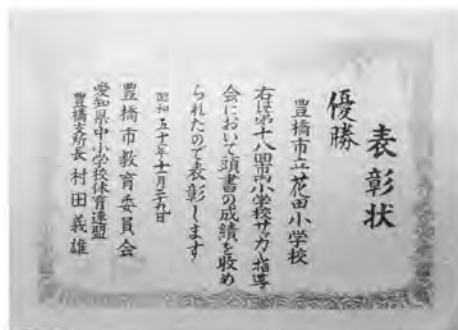 表彰状
優勝
豊橋市立花田小学校
右は第十八回市内小学校サッカー指導
会において頭書の成績を収め
られたので表彰します
昭和五十年十一月二十九日
豊橋市教育委員会
愛知県中小学校体育連盟
豊橋支所長 村田義雄